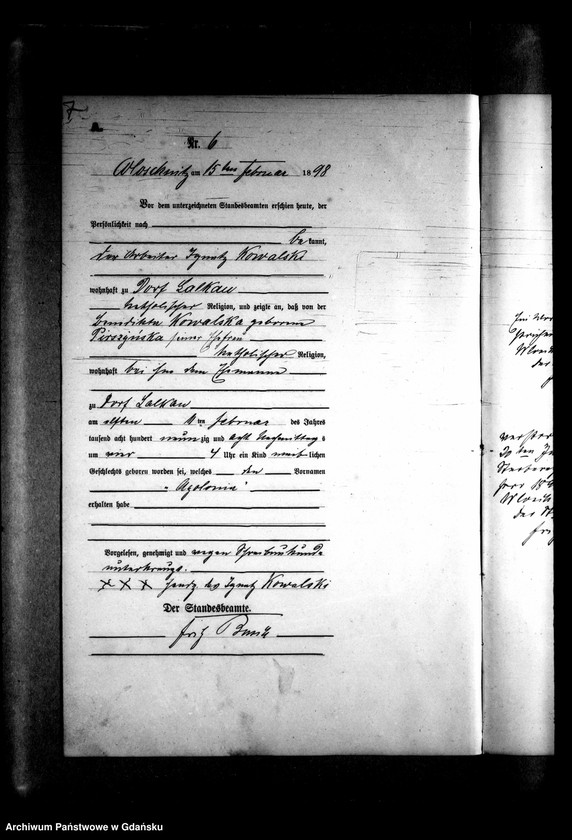 7
A.
Nr. 6
am 15 ten Februar 1898
Vor dem unterzeichneten Standesbeamten erschien heute, der
Persönlichkeit nach
bekannt,
der Arbeiter Ignatz Kowalski
wohnhaft zu Dorf Lalkau
katholischer Religion, und zeigte an, daß von der
Benedikta Kowalska geborene
seiner Ehefrau
katholischer Religion,
wohnhaft bei ihm dem Ehemanne
zu Dorf Lalkau
am elften 11 ten Februar des Jahres
tausend acht hundert neunzig und acht Nachmittags
um vier 4 Uhr ein Kind weiblichen
Geschlechts geboren worden sei, welches den Vornamen
"Apolonia"
erhalten habe
Vorgelesen, genehmigt und wegen Schreibunkunde
unterkreuzt.
X X X Handz. des Ignatz Kowalski
Der Standesbeamte.
Fritz
der
20 ten
des
Archiwum Państwowe w Gdańsku